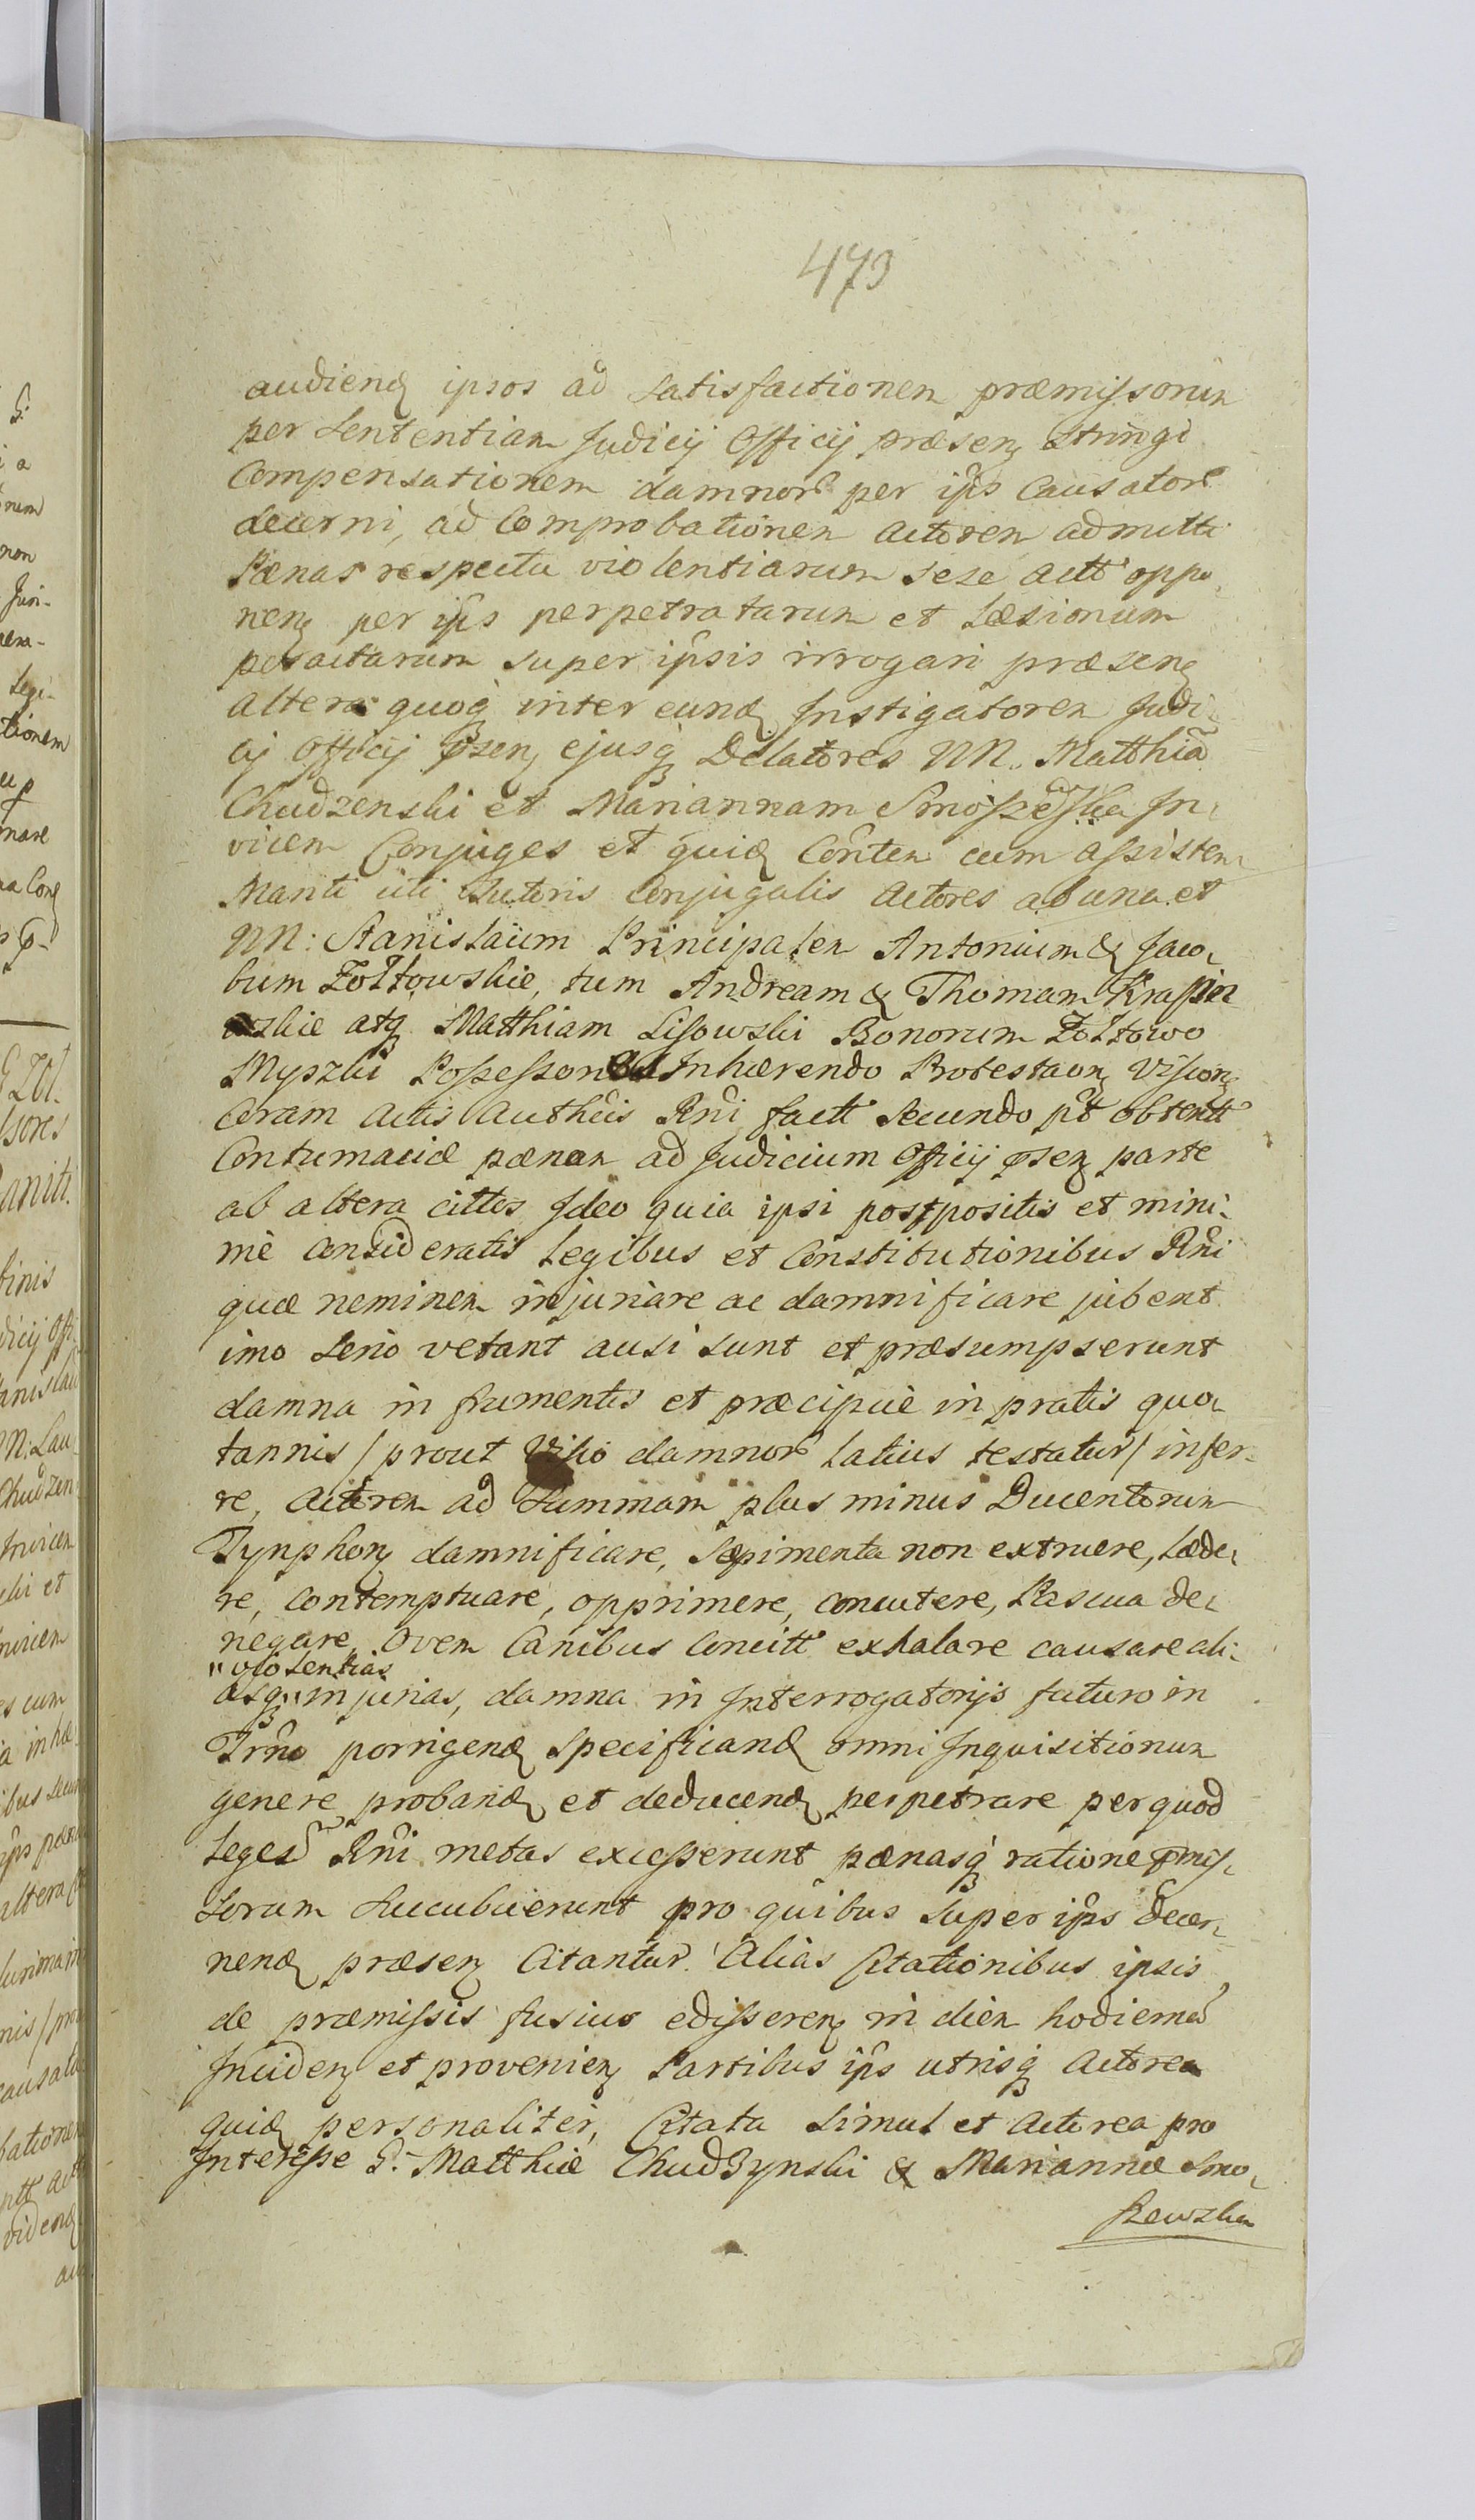 473
audiend ipsos ad Satisfactionem præmissorum
per Sententiam Judicij Officij præsen stringi
Compensationem damnor per ips Causator
decerni, ad Comprobationem Actorem admitti
Pænas respectu violentiarum sese actt oppo-
nen per ips perpetratarum et Læsionum
peractarum super ipsis irrogari præsen
Altera quoq inter eund Instigatorem Judi-
cij Officij præsen ejusq Delatores NN. Matthia
Chudzenski et Mariannam In-
vicem Conjuges et quid Conten cum assisten
Mariti uti Tutoris Conjugalis Actores ab una et
NN: Stanislaum Principalem Antonium & Jaco-
bum Zołtowskie, tum Andream & Thomam Krassin
skie atq Matthiam Lisowski Bonorum Zołtowo
Myszki Possessores Inhærendo Protestaon Vision
Coram Actis Authcis Rni factt Secundo pt obtentt
Contumaciæ pænam ad Judicium Officij præsen parte
ab altera cittos Ideo quia ipsi postpositis et mini-
mè Consideratis Legibus et Constitutionibus Rni
quæ neminem injuriare ac damnificare jubent
imo Serio vetant ausi sunt et præsumpserunt
damna in frumentis et præcipuè in pratis quo-
tannis / prout Visio damnor latius testatur / infer-
re, Actorem ad Summam plus minus Ducentorum
Tynphon damnificare, Sæpimenta non extruere, læde-
re, Contemptuare, opprimere, concutere, Pascua de-
negare, Ovem Canibus Concitt exhalare causare ali-
"violentias
asq" injurias, damna in Interrogatorijs futuro in
Trno porrigend specificand omni Inquisitionum
genere proband et deducend perpetrare per quod
Leges Rni metas excesserunt pænasq ratione præmis-
sorum Succubuerunt pro quibus super ips decer-
nend præsen Citantur. Alias Citationibus ipsis
de præmissis fusius edisseren in diem hodiernam
Inciden et provenien Partibus ips utrisq Actorea
quid personaliter, Citata Simul et Actorea pro
Interesse G. Matthiæ Chudzynski & Mariannæ Smo-
szewska